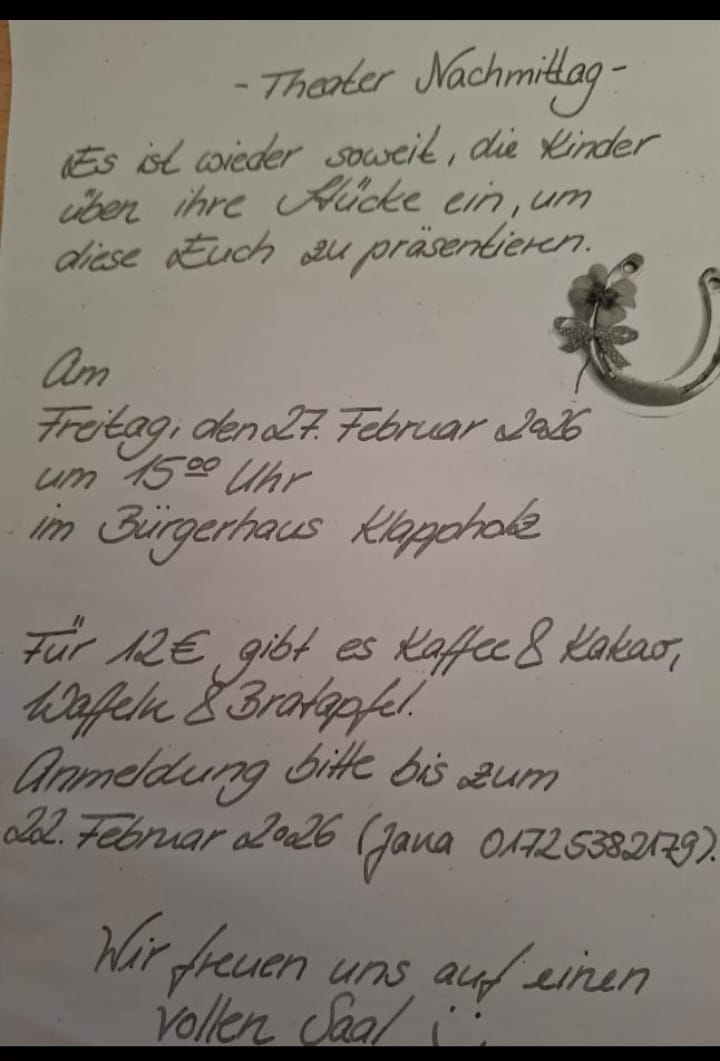 - Theater Nachmittag -
Es ist wieder soweit, die Kinder
üben ihre Stücke ein, um
diese Euch zu präsentieren.
Am
Freitag, den 27. Februar 2026
um 15⁰⁰ Uhr
im Bürgerhaus Klappholz
Für 12€ gibt es Kaffee & Kakao,
Waffeln & Bratapfel.
Anmeldung bitte bis zum
22. Februar 2026 (Jana 01725382179).
Wir freuen uns auf einen
vollen Saal